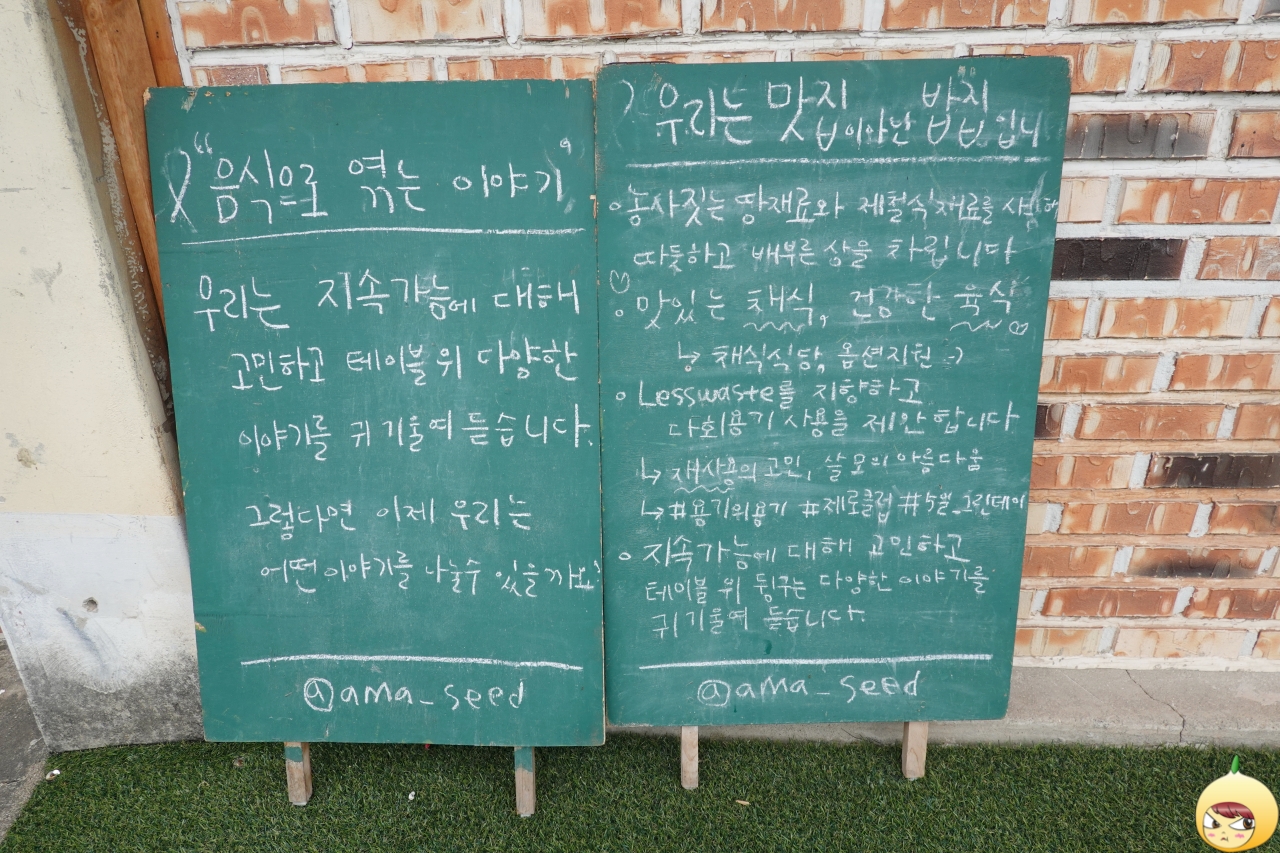 "음식으로 엮는 이야기"
우리는 지속가능에 대해
고민하고 테이블 위 다양한
이야기를 귀 기울여 듣습니다.
그렇다면 이제 우리는
어떤 이야기를 나눌수 있을까요?
@ama_seed
우리는 맛집이아닌 밥집입니
농사짓는 땅재료와 제철식재료를 사용해
따듯하고 배부른 상을 차립니다
맛있는 채식, 건강한 육식
↳ 채식식당, 옵션지원 :)
Lesswaste를 지향하고
다회용기 사용을 제안합니다
↳ 재사용의 고민, 쓸모의 아름다움
↳ #용기위용기 #제로클럽 #5월_그린데이
지속가능에 대해 고민하고
테이블 위 뒹구는 다양한 이야기를
귀 기울여 듣습니다.
@ama_seed